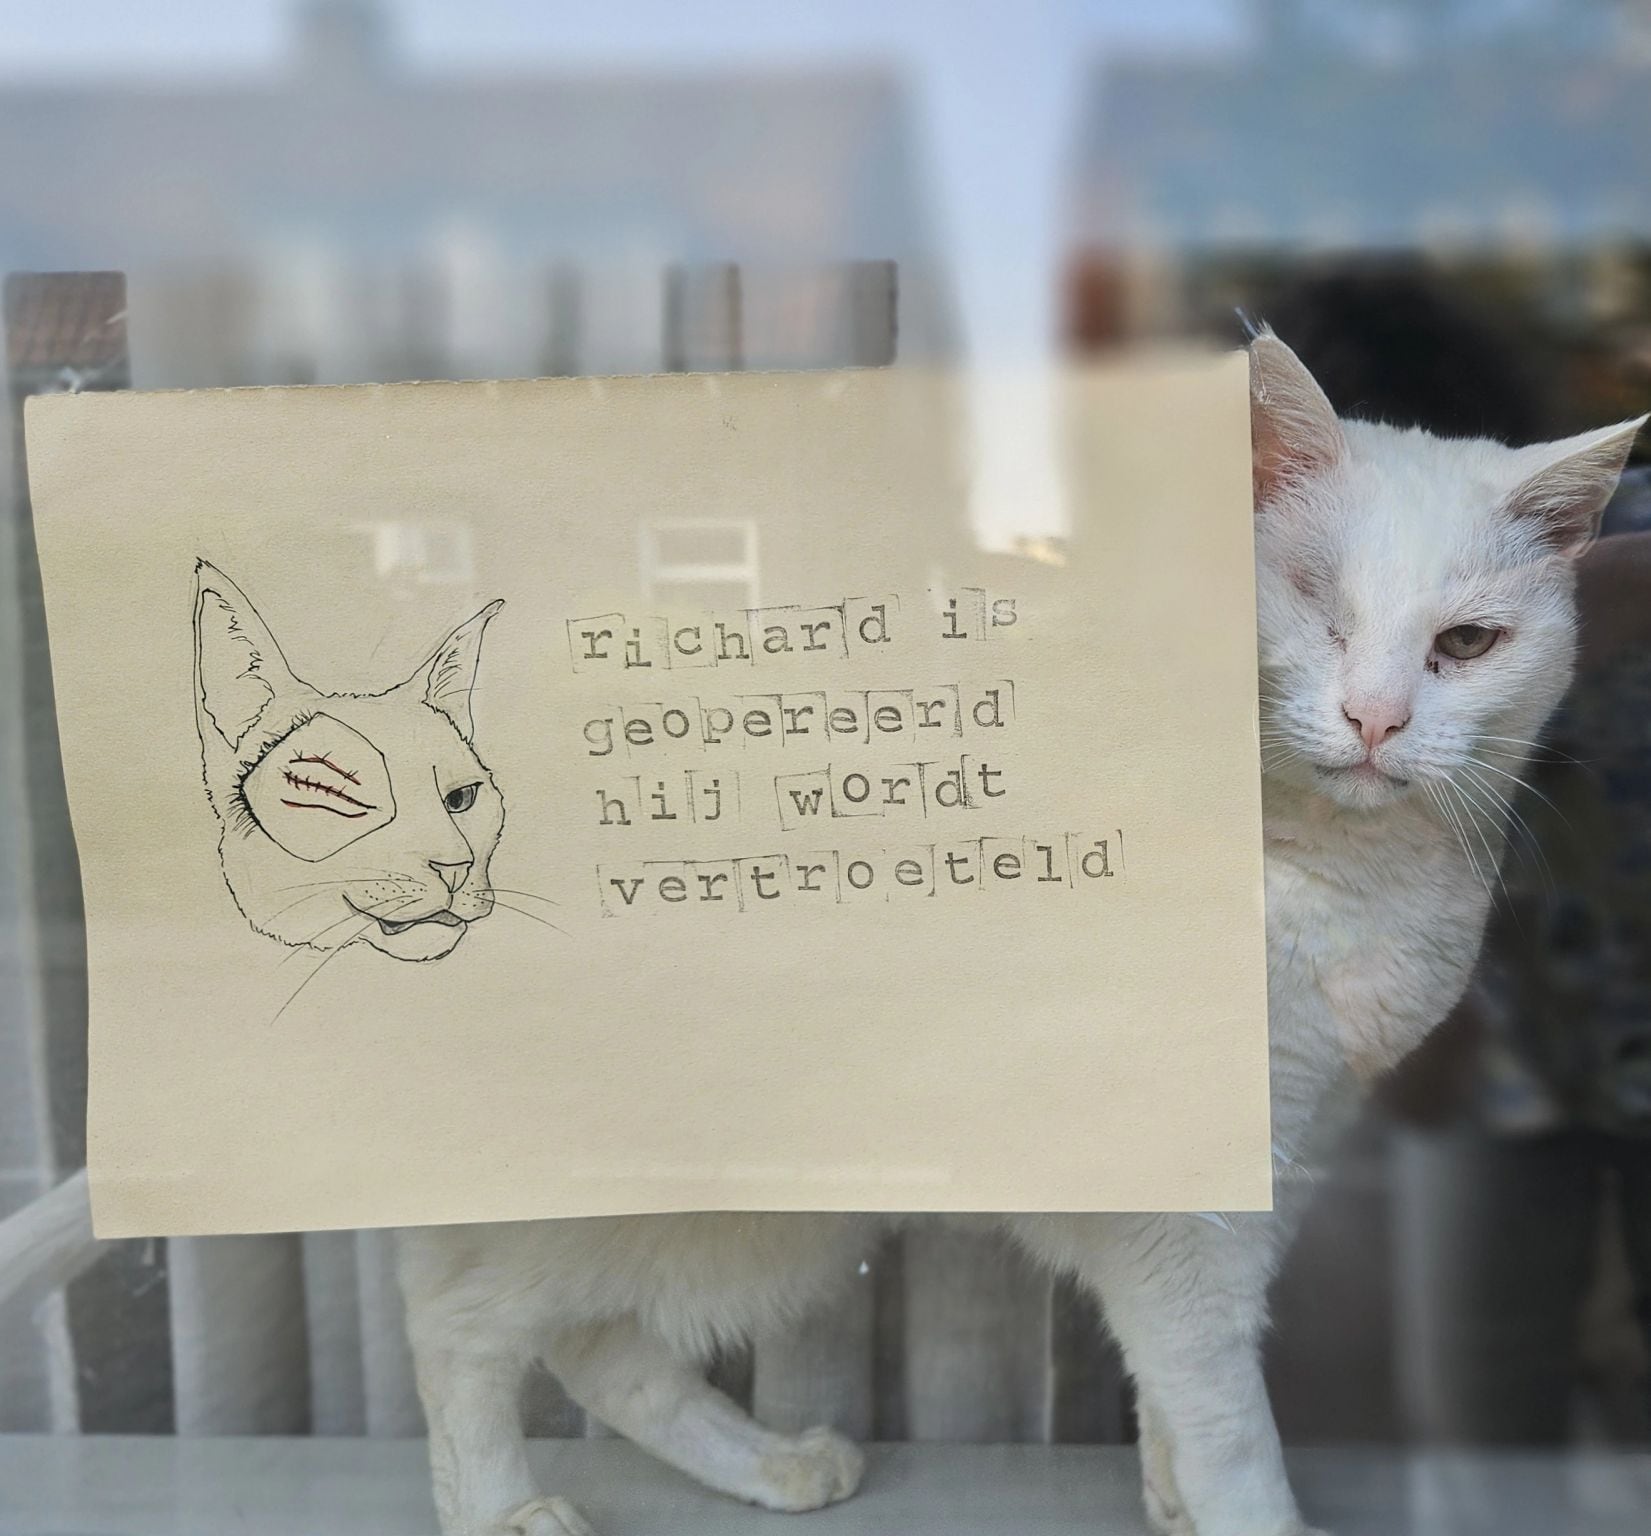 richard is
geopereerd
hij wordt
vertroeteld